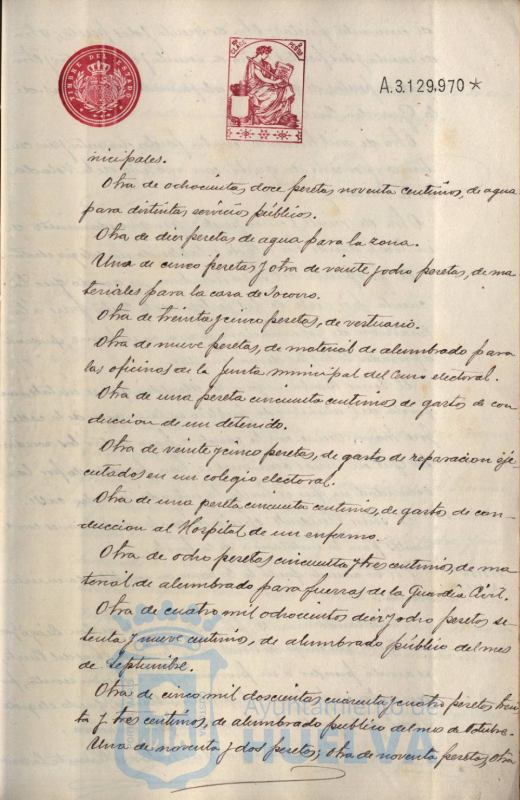 TIMBRE DEL ESTADO
A.3.129,970*
nicipales.
Otra de ochocientas doce pesetas noventa centimos, de agua
para distintos servicios públicos.
Otra de diez pesetas de agua para la zona.
Una de cinco pesetas y otra de veinte y ocho pesetas, de ma-
teriales para la casa de Socorro.
Otra de treinta y cinco pesetas, de vestuario.
Otra de nueve pesetas, de material de alumbrado para
las oficinas de la Junta municipal del Censo electoral.
Otra de una peseta cincuenta centimos de gastos de con-
duccion de un detenido.
Otra de veinte y cinco pesetas, de gasto de reparacion eje-
cutados en un colegio electoral.
Otra de una peseta cincuenta centimos, de gasto de con-
duccion al Hospital de un enfermo.
Otra de ocho pesetas cincuenta y tres centimos, de ma-
terial de alumbrado para fuerzas de la Guardia Civil.
Otra de cuatro mil ochocientos diez y ocho pesetas se-
tenta y nueve centimos, de alumbrado público del mes
de Septiembre.
Otra de cinco mil doscientas cuarenta y cuatro pesetas trein-
ta y tres centimos, de alumbrado publico del mes de Octubre.
Una de noventa y dos pesetas; otra de noventa pesetas; otra
Ayuntamiento de
HUELVA